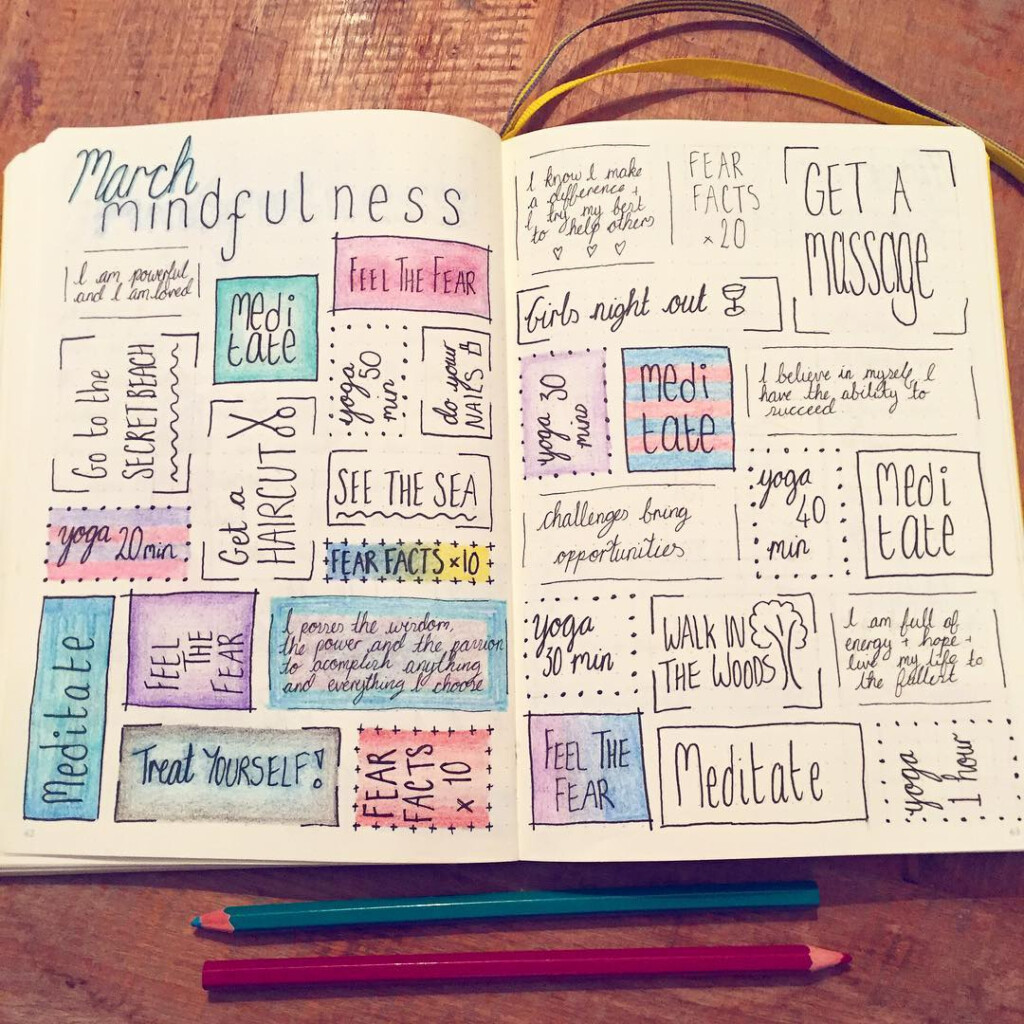 March
mindfulness
I am powerful
and I am loved
MEDI
tate
FEEL THE FEAR
Go to the
SECRET BEACH
Get a
HAIRCUT
yoga
50
min
do your
NAILS
SEE THE SEA
yoga 20 min
FEAR FACTS x10
Meditate
FEEL
THE
FEAR
I posses the wisdom,
the power and the passion
to acomplish anything
and everything I choose
Treat YOURSELF!
FEAR
FACTS
x 10
I know I make
a difference +
I try my best
to help others
FEAR
FACTS
x 20
GET A
massage
Girls night out
yoga 30
mins
MEDI
tate
I believe in myself, I
have the ability to
succeed
challenges bring
opportunities
yoga
40
min
MEDI
tate
yoga
30 min
WALK IN
THE WOODS
I am full of
energy + hope +
live my life to
the fullest
FEEL THE
FEAR
Meditate
yoga
1 hour
62
63